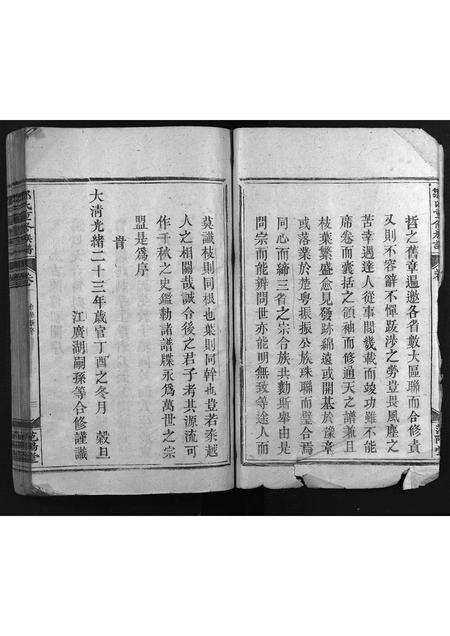 哲之舊章遍邀各省數大區聯而合修責
又則不容辭不憚跋涉之勞豈畏風塵之
苦幸遇達人從事閱幾載而竣功雖不能
席卷而囊括之領袖而修通天之譜兼且
枝葉繁盛愈見發跡綿遠或開基於豫章
或落業於楚粵振振公族珠聯而璧合焉
同心而締三省之宗合族共勷斯舉由是
問宗而能辨問世亦能明無致等途人而
莫識枝則同根也葉則同幹也豈若秦越
人之相關哉誠令後之君子考其源流可
作千秋之史鑑勒諸譜牒永為萬世之宗
盟是為序
旹
大清光緒二十三年歲官丁酉之冬月 穀旦
江廣湖嗣孫等合修謹識